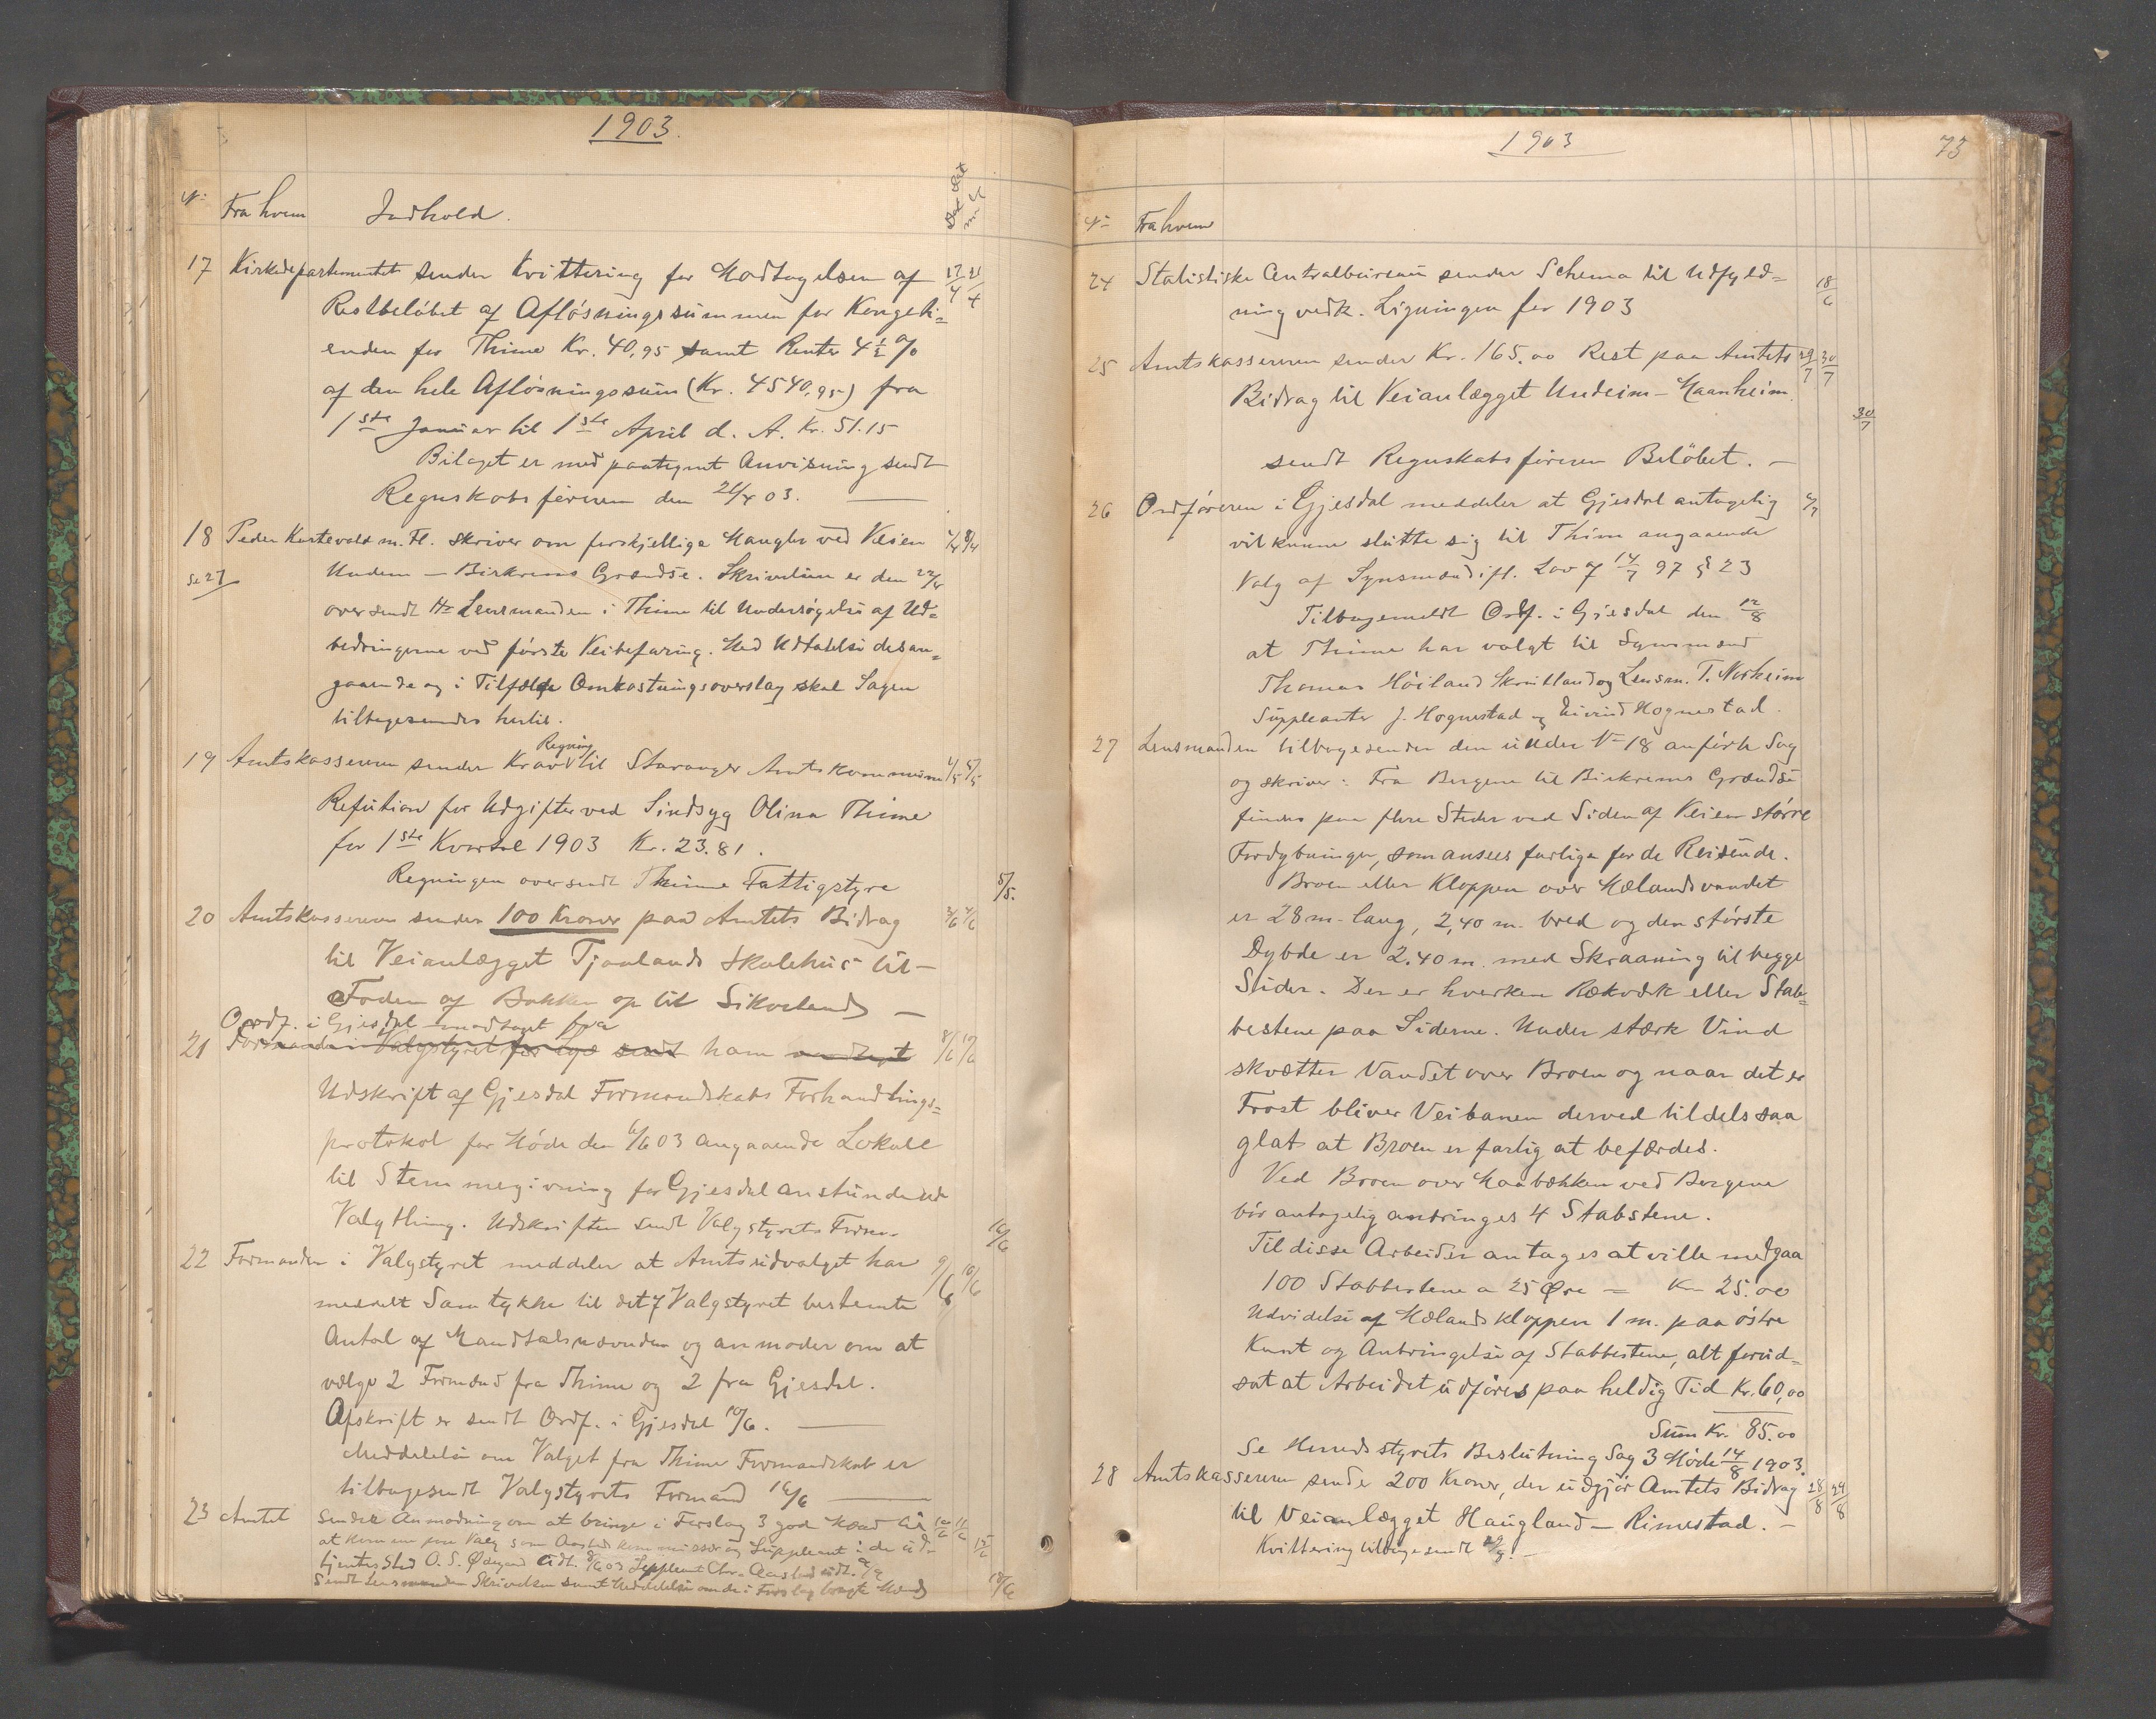 1903.
No Fra hvem Indhold.
17 Kirkedepartementet sender Kvittering for Modtagelsen af 17/4 21/4
Restbeløbet af Afløsningssummen for Kongeti=
enden for Thime Kr. 40,95 samt Renter 4 1/2 %
af den hele Afløsningssum (Kr. 4540,95) fra
1ste Januar til 1ste April d. A. Kr. 51.15
Bilaget er med paategnt Anvisning sendt
Regnskabsføreren den 21/4 03.
18 Peder Kartevold m. Fl. skriver om forskjellige Mangler ved Veien
Se 27 Undem – Birkrems Grændse. Skrivelsen er den 22/4
oversendt Hr Lensmanden i Thime til Undersøgelse af Ud=
bedringerne ved første Veibefaring. Med Udtalelse desan=
gaaende og i Tilfælde Omkostningsoverslag skal Sagen
tilbagesendes hertil.
Regning
19 Amtskassereren sender Krav til Stavanger Amtskommune 4/5 5/5
Refution for Udgifter ved Sindsyg Olina Thime
for 1ste Kvartal 1903 Kr. 23.81.
Regningen oversendt Thime Fattigstyre 5/5.
20 Amtskassereren sender 100 Kroner paa Amtets Bidrag
til Veianlægget Tjaalands Skolehus til –
Foden af Bakken op til Sikvelands –
Ordf. i Gjesdal modtaget fra
21 Formanden i Valgstyret for Lye sendt ham modtagt 8/6 10/6
Udskrift af Gjesdal Formandskabs Forhandlings=
protokol for Møde den 6/6 03 angaaende Lokale
til Stemmegivning for Gjesdal anstundende
Valgthing. Udskriften sendt Valgstyrets Form. 16/6
22 Formanden i Valgstyret meddeler at Amtsudvalget har 9/6 10/6
meddelt Samtykke til det af Valgstyret bestemte
Antal af Mandtalsnævnder og anmoder om at
vælge 2 Formænd fra Thime og 2 fra Gjesdal.
Afskrift er sendt Ordf. i Gjesdal 10/6.
Meddelelse om Valget fra Thime Formandskab er
tilbagesendt Valgstyrets Formand 16/6
23 Amtet sender Anmodning om at bringe i Forslag 3 gode Mænd til
at komme paa Valg som Aastedskommissær og Suppleant i de ud=
tjentes Sted O. S. Ødegaard Suppleant Chr. Aarstad
Sendt Lensmanden Skrivelsen samt Meddelelse om de i Forslag bragte Mænd 18/6
1903 73
No Fra hvem
24 Statistiske Centralbureau sender Schema til Udfyld= 18/6
ning vedk. Ligningen for 1903
25 Amtskassereren sender Kr. 165.00 Rest paa Amtets 29/7 30/7
Bidrag til Veianlægget Undeim – Maanheim.
30/7
sendt Regnskabsføreren Beløbet. –
26 Ordføreren i Gjesdal meddeler at Gjesdal antagelig
vil kunne slutte sig til Thime angaaende
Valg af Synsmænd ifl. Lov af 14/7 97 § 23
Tilbagemeldt Ordf. i Gjesdal den 12/8
at Thime har valgt til Synsmænd
Thomas Høiland Skrudland og Lensm. T. Norheim
Suppleanter J. Hognestad og Eivind Hognestad.
27 Lensmanden tilbagesender den under No 18 anførte Sag
og skriver: Fra Bergene til Birkrems Grændse
findes paa flere Steder ved Siden af Veien større
Fordybninger, som ansees farlige for de Reisende.
Broen eller Kloppen over Mælandsvandet
er 28 m. lang, 2,40 m. bred og den største
Dybde er 2.40 m. med Skraaning til begge
Sider. Der er hverken Rækværk eller Stab=
bestene paa Siderne. Under stærk Vind
skvætter Vandet over Broen og naar det er
Frost bliver Veibanen derved tildels saa
glat at Broen er farlig at befærdes.
Ved Broen over Maabækken ved Bergene
bør antagelig anbringes 4 Stabstene.
Til disse Arbeider antages at ville medgaa
100 Stabbestene a 25 Øre = Kr 25.00
Udvidelse af Mælandskloppen 1 m. paa østre
Kant og Anbringelse af Stabbestene, alt forud=
sat at Arbeidet udføres paa heldig Tid Kr. 60,00
Sum Kr. 85.00
Se Herredsstyrets Beslutning Sag 3 Møde 14/8 1903.
28 Amtskassereren sender 200 Kroner, der udgjør Amtets Bidrag 28/8 29/8
til Veianlægget Haugland – Rimestad. –
Kvittering tilbagesendt 29/8. –